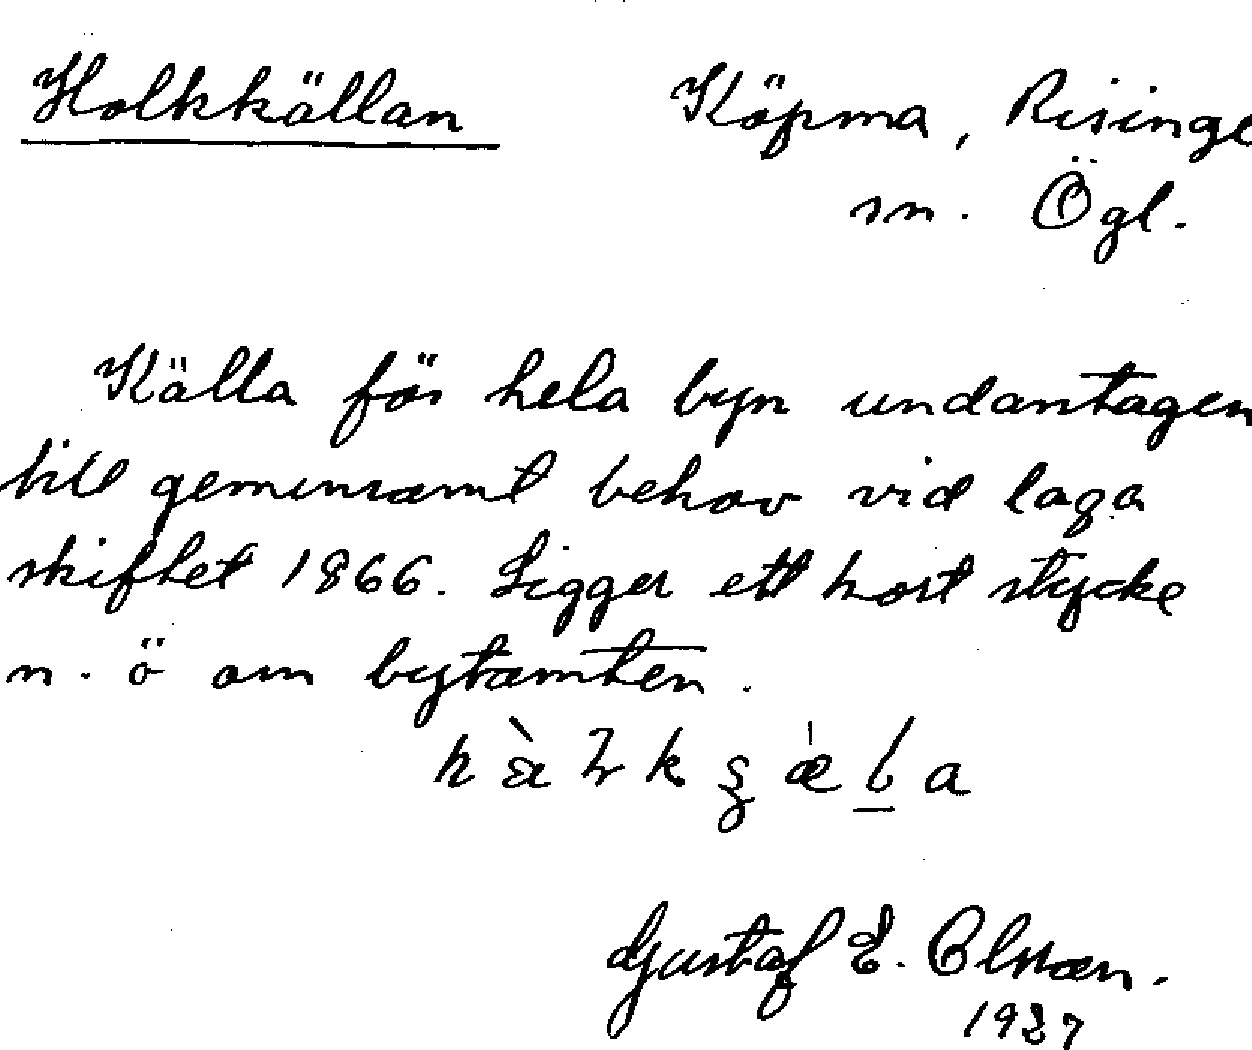 Holkkällan Köpma, Risinge
sn. Ögl.
Källa för hela byn undantagen
till gemensamt behov vid laga
skiftet 1866. Ligger ett kort stycke
n. ö om bytomten.
Gustaf E. Olsson.